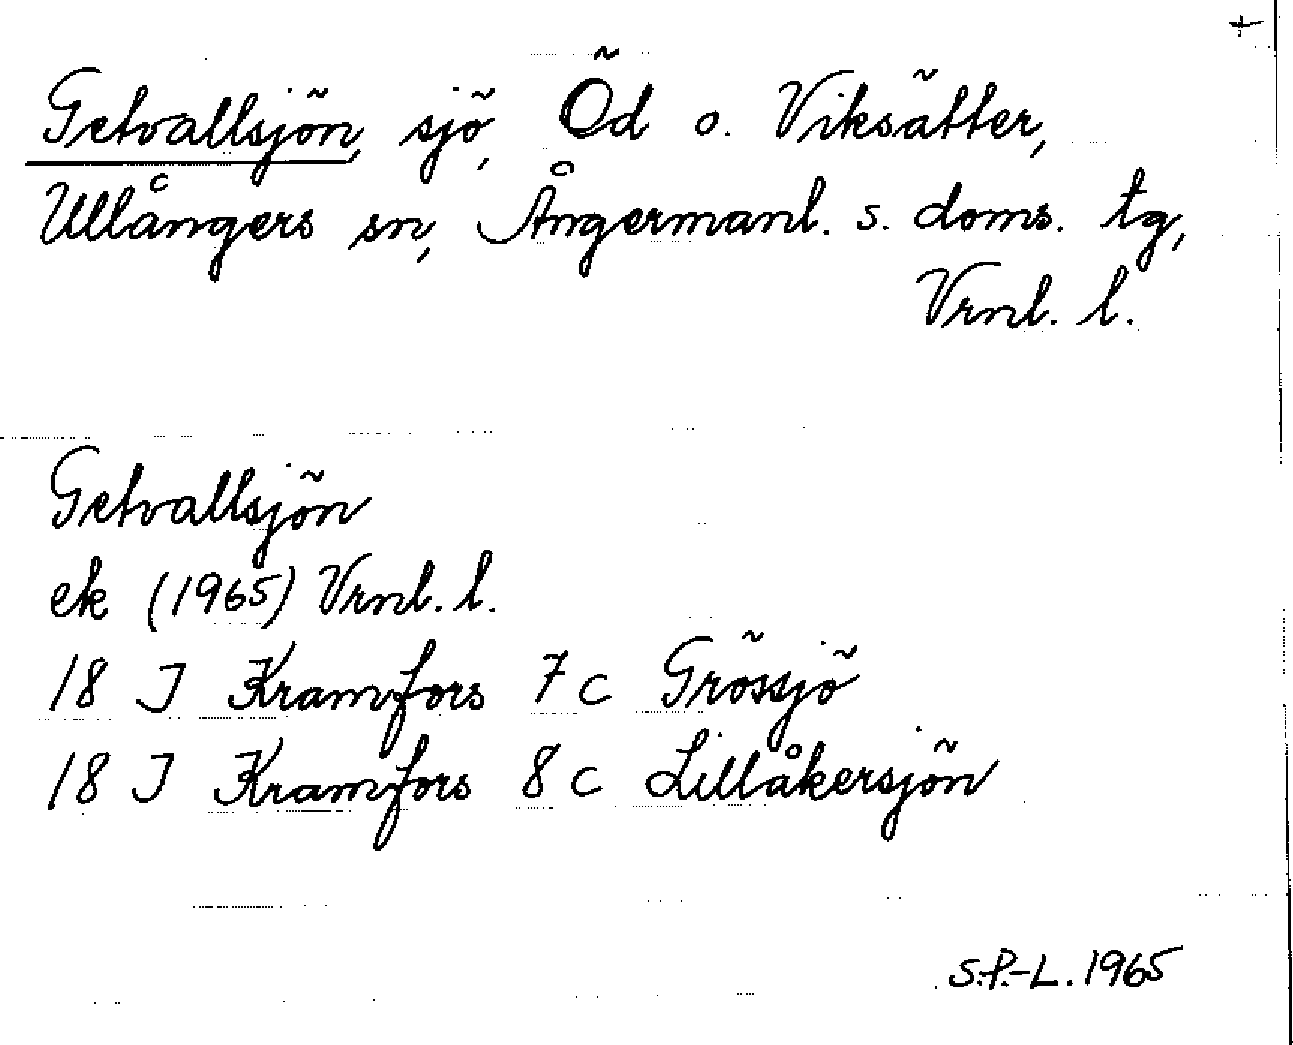 +
Getvallsjön, sjö, Öd o. Viksätter,
Ullångers sn, Ångermanl. s. doms. tg,
Vrnl. l.
Getvallsjön
ek (1965) Vrnl. l.
18 J Kramfors 7 c Grössjö
18 J Kramfors 8 c Lillåkersjön
S.P.-L. 1965